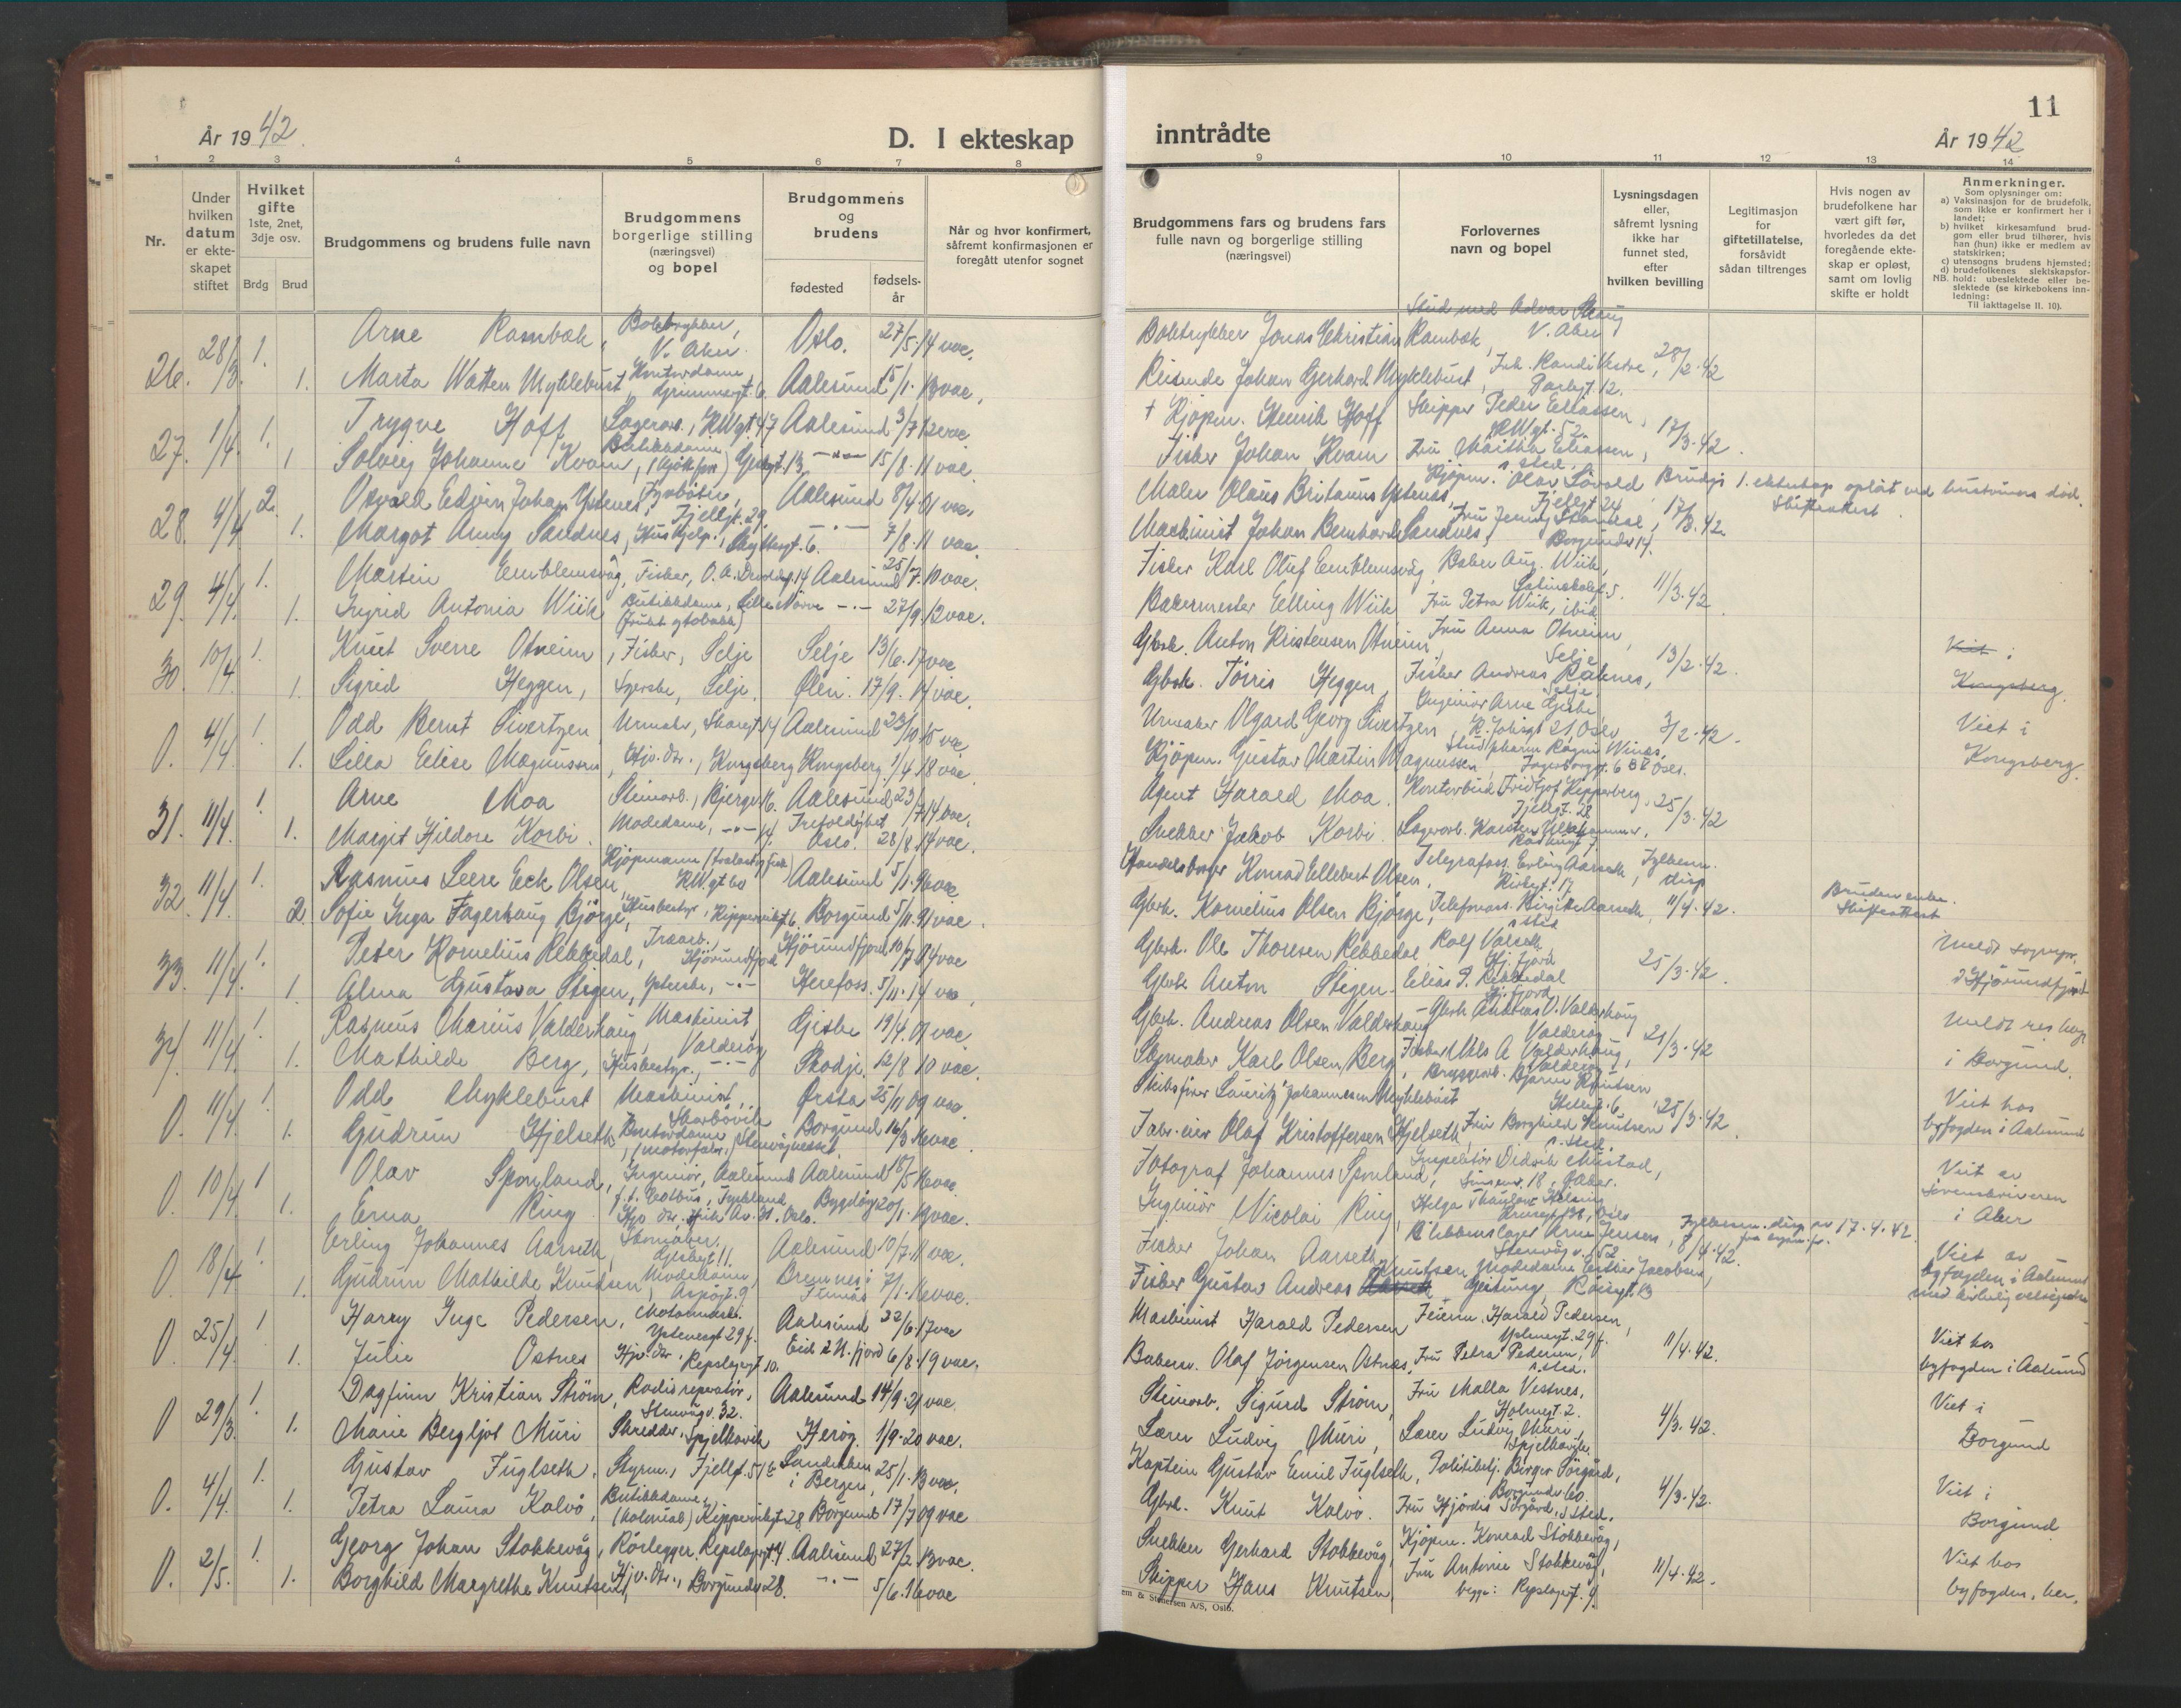 År 1942.
D. I ekteskap
1 2 3 4 5 6 7 8
Nr.
Under hvilken datum er ekteskapet stiftet
Hvilket gifte 1ste, 2net, 3dje osv.
Brdg Brud
Brudgommens og brudens fulle navn
Brudgommens borgerlige stilling (næringsvei) og bopel
Brudgommens og brudens
fødested fødselsår
Når og hvor konfirmert, såfremt konfirmasjonen er foregått utenfor sognet
26. 28/3. 1. Arne Rambæk, V. Aker. Oslo. 27/5.14 vac.
1. Marta Watten Myklebust, Kontordame Grimmergt. 6. Aalesund 15/1.13 vac.
27. 1/4. 1. Trygve Hoff Lagerarb., KWgt 47 Aalesund 3/7.12 vac.
1 Solveig Johanne Kvam, Butikkdame 13. -"- 15/8.11 vac.
28. 4/4. 2. Osvald Edvin Johan Ystenes, Fyrbøter, Fjellgt. 29. Aalesund 8/4.01 vac.
1. Margot Anny Sandnes, Hushjelp, 6. -"- 7/8.11 vac.
29. 4/4. 1. Martin Emblemsvåg, Fisker, O.A. Devoldsg. 14 Aalesund 25/7.10 vac.
1. Ingrid Antonia Wiik Butikkdame, Lille Nörve (frukt og tobakk) -"- 27/9.12 vac.
30. 10/4. 1. Knut Sverre Otneim, Fisker, Selje Selje 13/6.17 vac
1. Sigrid Heggen, Syerske, Selje. Ølen. 17/9.14 vac.
0. 4/4. 1. Odd Bernt Sivertzen Urmaker, 14 Aalesund 23/10.15 vac
1. Lilla Elise Magnussen, Hjv. dtr., Kongsberg Kongsberg 1/4.18 vac.
31. 11/4. 1. Arne Moa Steinarb., 16. Aalesund 23/7.14 vac.
1. Margit Hildore Korbi. Modedame, -"- 14. Trefoldighet Oslo. 28/8.14 vac.
32. 11/4. 1. Rasmus Leere Eck Olsen, Kjöpmann KW.gt 60 Aalesund 5/1.96 vac
2. Sofie Inga Fagerhaug Bjørge, Husbestyr., 6. Borgund 5/11.91 vac.
33. 11/4. 1. Peter Kornelius Rekkedal, Hjörundfjord Hjörundfjord 10/7.84 vac
1. Alma Gustava Stigen, -"- Herefoss. 5/11.14 vac.
34. 11/4. 1. Rasmus Marius Valderhaug, Maskinist, Valderøy Giske 19/4.01 vac.
1. Mathilde Berg, Husbestyr., -"- Skodje. 12/8 10 vac.
0. 11/4. 1. Odd Myklebust Maskinist, Skarbövik Ørsta 25/11 09 vac.
1. Gudrun Hjelseth, Kontordame, Borgund 16/3.16 vac.
0. 10/4. 1 Olav Sponland, Ingeniör, Aalesund Aalesund 18/5.16 vac.
1. Erna Ring Oslo. Bygdöy 20/1.19 vac.
0. 18/4. 1. Erling Johannes Aarseth, Skomaker, 11. Aalesund 10/7.11 vac.
1. Gudrun Mathilde Knudsen, Modedame, Aspøgt. 9 Bremnes i 7/1.16 vac.
0. 25/4. 1. Harry Inge Pedersen, Ystenesgt 29 f. Aalesund 22/6.17 vac
1. Julie Ostnes Hjv. dtr., Repslagergt. 10. Eid i N.fjord 6/8.19 vac.
0 29/3. 1. Dagfinn Kristian Ström, Radioreparatør, Stenvågv. 32. Aalesund 14/9.21 vac.
1. Marie Bergljot Muri Skredder, Spjelkavik Herøy. 1/9.20 vac.
0. 4/4. 1. Gustav Fuglseth, Styrm., Fjellgt. 51 b. Sandviken i Bergen, 25/1.13 vac.
1. Petra Laura Kalvø, Butikkdame, (kolonial) 28. Borgund 17/7 09 vac
0. 2/5. 1. Georg Johan Stokkevåg, Rörlegger, Repslagergt. 4. Aalesund 27/2.13 vac.
1. Borghild Margrethe Knutsen, Hjv. dtr., Borgundv 28. -"- 5/6.16 vac
inntrådte
11
År 1942
9 10 11 12 13 14
Brudgommens fars og brudens fars fulle navn og borgerlige stilling (næringsvei)
Forlovernes navn og bopel
Lysningsdagen eller, såfremt lysning ikke har funnet sted, efter hvilken bevilling
Legitimasjon for giftetillatelse, forsåvidt sådan tiltrenges
Hvis nogen av brudefolkene har vært gift før, hvorledes da det foregående ekteskap er opløst, samt om lovlig skifte er holdt
Anmerkninger.
Som oplysninger om:
a) Vaksinasjon for de brudefolk, som ikke er konfirmert her i landet;
b) hvilket kirkesamfund brudgom eller brud tilhører, hvis han (hun) ikke er medlem av statskirken;
c) utensogns brudens hjemsted;
d) brudefolkenes slektskapsforhold: ubeslektede eller beslektede (se kirkebokens innledning:
NB. Til iakttagelse II. 10).
Boktrykker Jonas Christian Rambæk, V. Aker
Reisende Johan Gerhard Myklebust, Frk. Randi Vestre, 12. 28/2.42
† Kjöpm. Henrik Hoff Skipper Peder Eliassen, KWgt. 52.
Fisker Johan Kvam Fru Eliassen, s. sted. 17/3.42.
Maler Olaus Britanus Ystenes, Kjöpm. Olav Lövold Fjellgt 24 Brudgs 1. ekteskap oplöst ved hustruens död. Skifteattest
Maskinist Johan Bernhard Sandnes, Fru Jenny Borgundv 14. 17/3.42.
Fisker Karl Oluf Emblemsvåg, Baker Aug. Wiik,
Bakermester Elling Wiik Latinskolegt 5. Fru Petra Wiik, ibid. 11/3.42.
Gbrk. Anton Kristensen Otneim, Fru Anna Otneim, Selje
Gbrk. Törris Heggen, Fisker Andreas Selje 13/2.42. Viet i Kongsberg.
Urmaker Olgard Georg Sivertzen, Ingeniör Arne 21, Oslo 3/2.42. Viet i Kongsberg.
Kjöpm. Gustav Martin Magnussen, Oslo.
Agent Harald Moa. Kontorbud Fridtjof Kipperberg, Fjellgt. 28
Snekker Jakob Korbi. Lagerarb. Karsten 25/3.42
Konrad Ellebert Olsen, Telegrafass. Erling Aarseth, Kirkegt. 17 Fylkesm. disp
Gbrk. Kornelius Olsen Bjørge, Telefonass. Birgitte Aarseth, s. sted 11/4.42. Bruden enke. Skifteattest
Gbrk. Ole Thoresen Rekkedal Hj.fjord
Gbrk. Anton Stigen. Elias P. Rekkedal Hj.fjord 25/3.42. Meldt sognepr. i Hjörundfjord
Gbrk. Andreas Olsen Valderhaug Gbrk Andreas O. Valderhaug Valderøy
Skomaker Karl Olsen Berg, Fisker Nils A Valderhaug, Valderøy. 21/3.42 Meldt res. kap. i Borgund.
Skibsfører Lauritz Johannesen Myklebust Bryggearb. Bjarne Knutsen 6.
Fabr.eier Olaf Kristoffersen Hjelseth, Fru Borghild Knutsen s. sted. 25/3.42. Viet hos byfogden i Aalesund
Fotograf Johannes Sponland, Inspektør Didrik Mustad, 18, Aker.
Ingeniör Nicolai Ring, Helga Oslo Viet av sorenskriveren i Aker
Fisker Johan Aarseth, Arne Jensen, Stenvågv. 52 8/4.42. Fylkesm. disp. 17.4.42.
Fisker Gustav Andreas Knutsen Modedame Esther Jacobsen, 13 Viet av byfogden i Aalesund med kirkelig velsignelse
Maskinist Harald Pedersen Feierm. Harald Pedersen, Ystenesgt. 29 f.
Bakerm. Olaf Jörgensen Ostnes, Fru Petra Pedersen, s. sted. 11/4.42. Viet hos byfogden i Aalesund
Steinarb. Sigurd Ström, Fru Malla Vestnes, Holmegt 2.
Lærer Ludvig Muri, Lærer Ludvig Muri, Spjelkavik. 4/3.42. Viet i Borgund
Kaptein Gustav Emil Fuglseth, Politibetj. Birger Sørgård, Borgundv 60.
Gbrk. Knut Kalvø. Fru Hjördis Sørgård, s. sted. 4/3.42. Viet i Borgund
Snekker Gerhard Stokkevåg, Kjöpm. Konrad Stokkevåg,
Skipper Hans Knutsen, Fru Antonie Stokkevåg, begge: Repslagergt. 9. 11/4.42. Viet hos byfogden, her.
em & Stenersen A/S, Oslo.